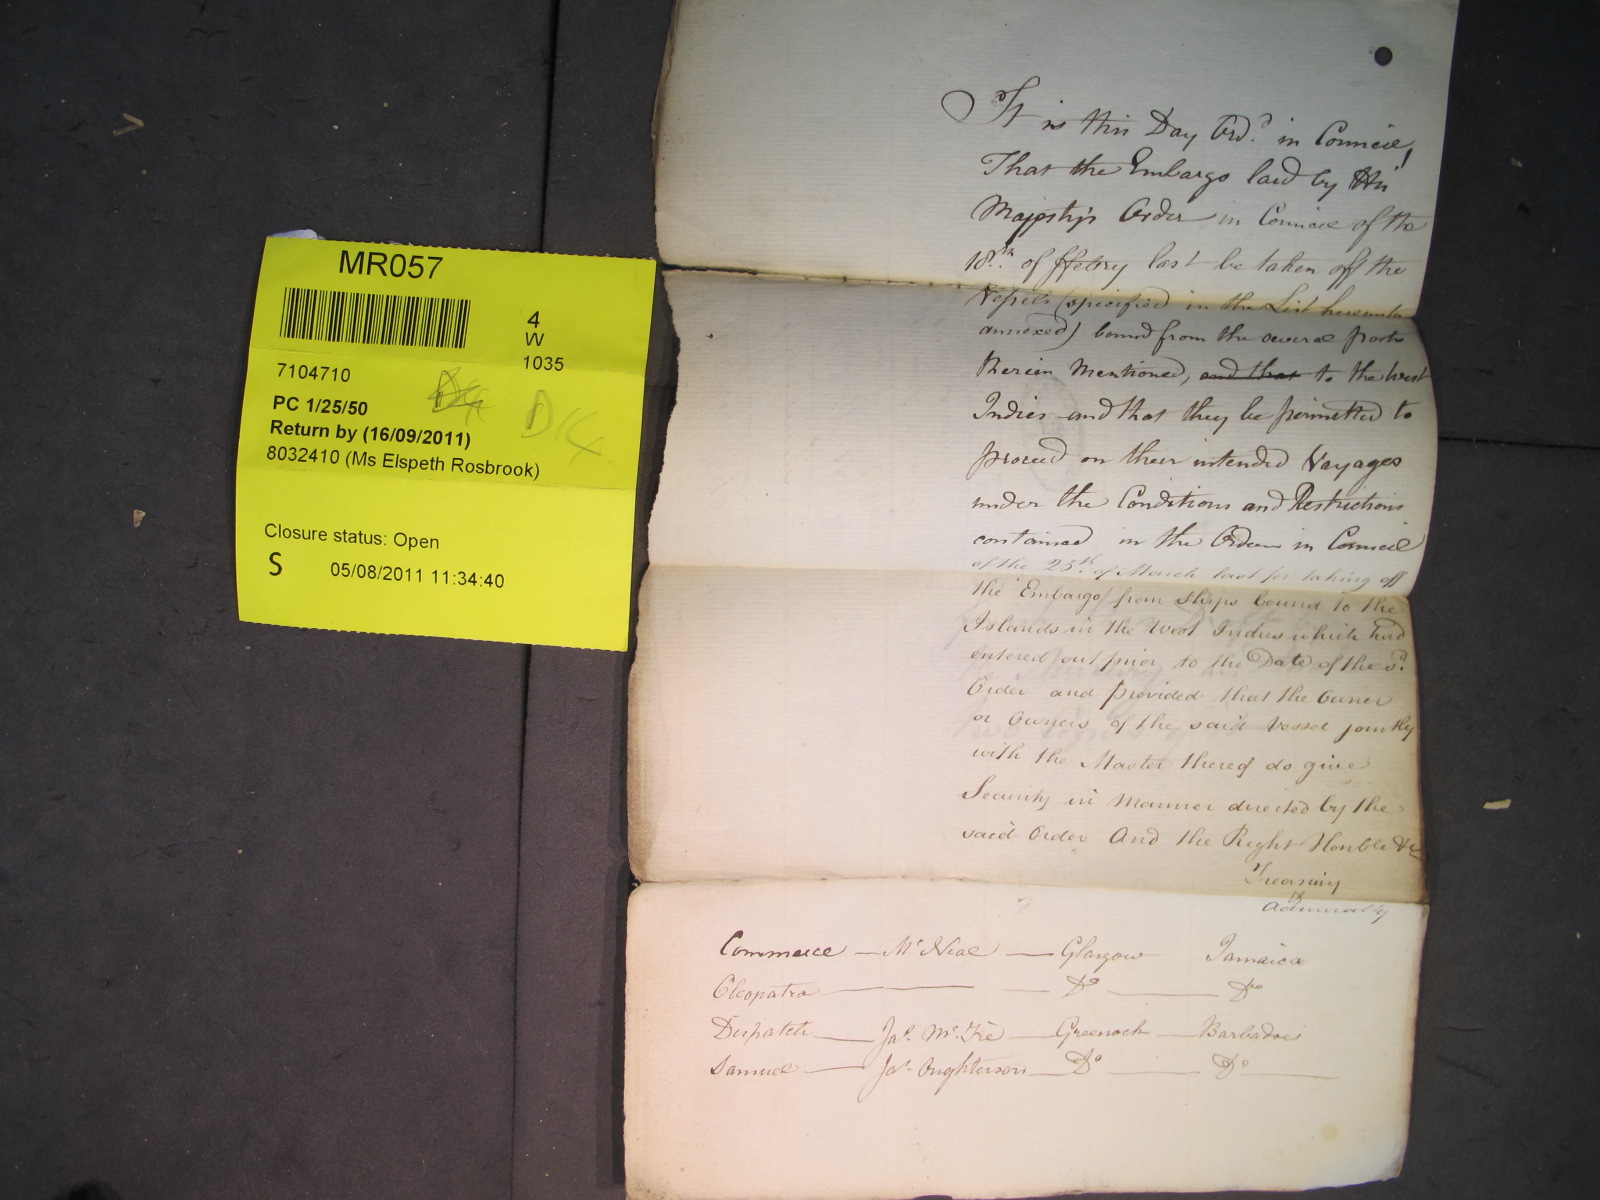 MR057
4
W
1035
7104710
PC 1/25/50
Return by (16/09/2011)
8032410 (Ms Elspeth Rosbrook)
DK
Closure status: Open
S 05/08/2011 11:34:40
It is this Day Ord.d in Council,
That the Embargo laid by His
Majesty's Order in Council of the
18.th of ffebry last be taken off the
Vessels (specified in the List hereunto
annexed) bound from the several ports
therein Mentioned, and that to the West
Indies and that they be permitted to
proceed on their intended Voyages
under the Conditions and Restrictions
contained in the Order in Council
of the 25th of March last for taking off
the Embargo from Ships bound to the
Islands in the West Indies which had
entered out prior to the Date of the s.d
Order and provided that the Owner
or Owners of the said Vessel jointly
with the Master thereof do give
Security in Manner directed by the
said Order And the Right Honble &c
Treasury
Admiralty
Commerce — McNeal — Glasgow Jamaica
Cleopatra — Do — Do
Dispatch — Jas. Mc.Fie — Greenock — Barbadoes
Samuel — Jas. Oughterson — Do — Do —